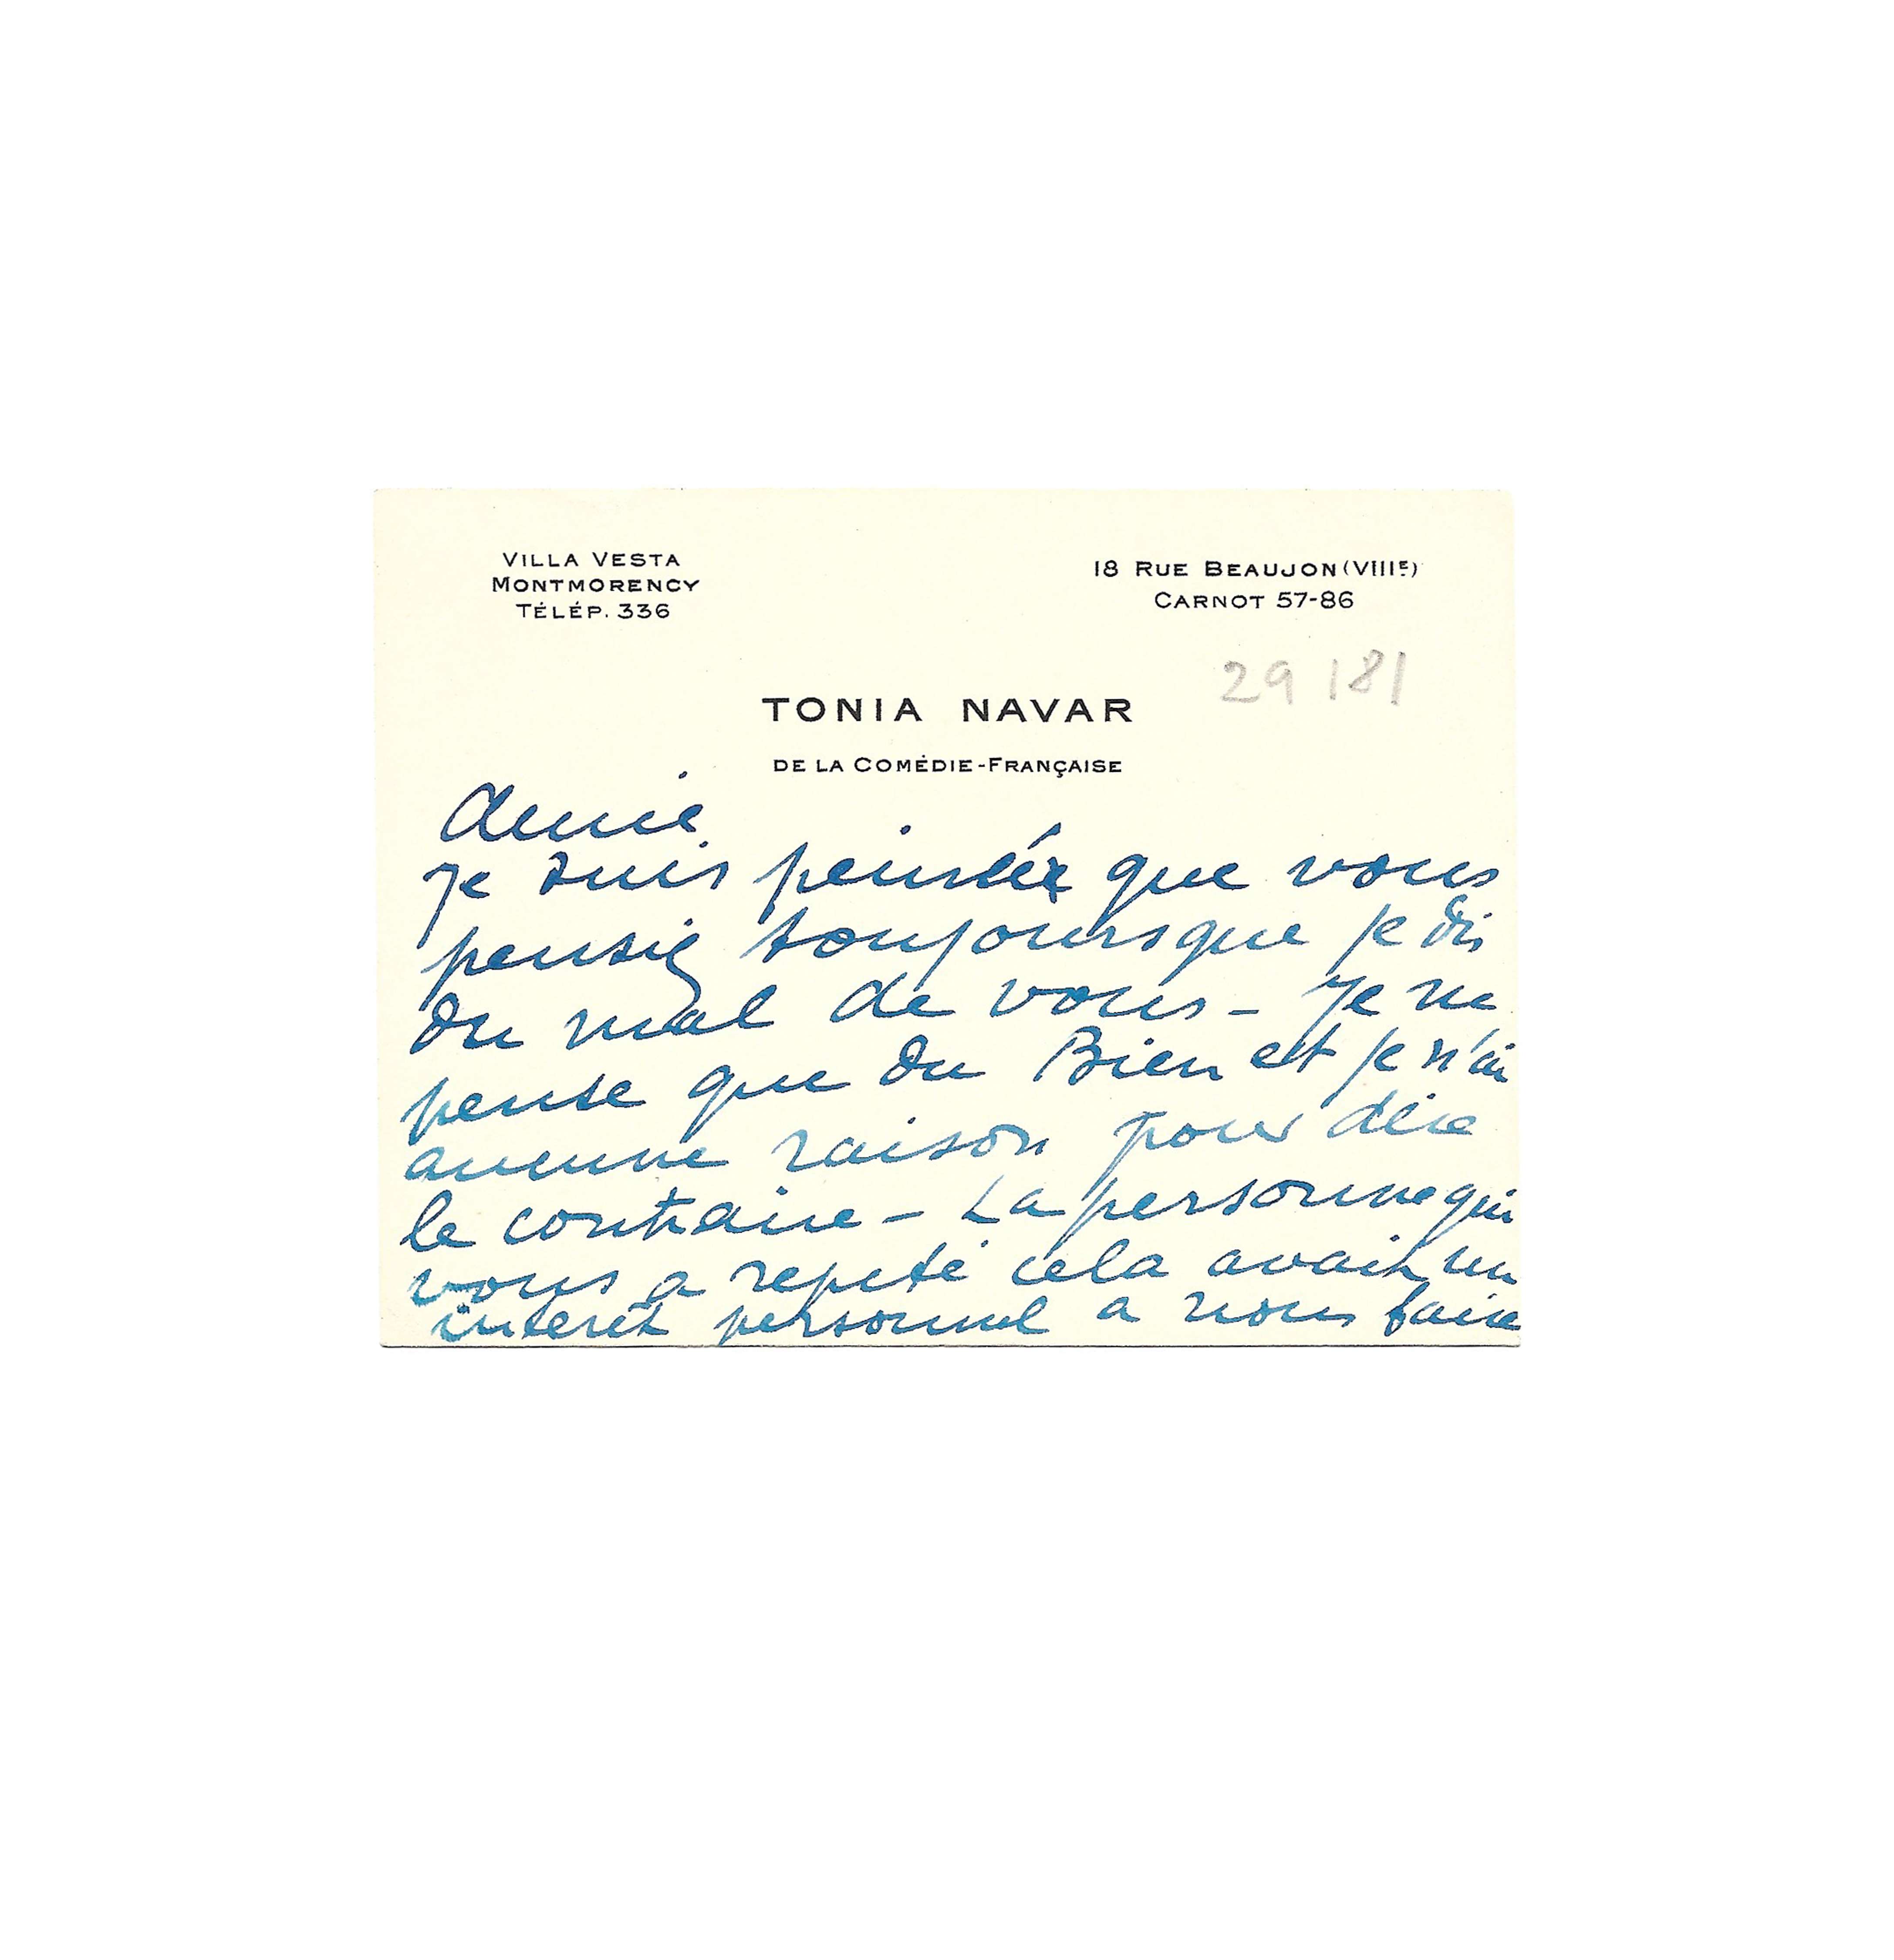 VILLA VESTA
MONTMORENCY
TÉLÉP. 336
18 RUE BEAUJON (VIIIE)
CARNOT 57-86
29 181
TONIA NAVAR
DE LA COMÉDIE-FRANÇAISE
Amie
Je suis peinée que vous
pensiez toujours que je dis
du mal de vous - Je ne
pense que du Bien et je n'ai
aucune raison pour dire
le contraire - La personne qui
vous a repeté cela avait un
interêt personnel a nous faire